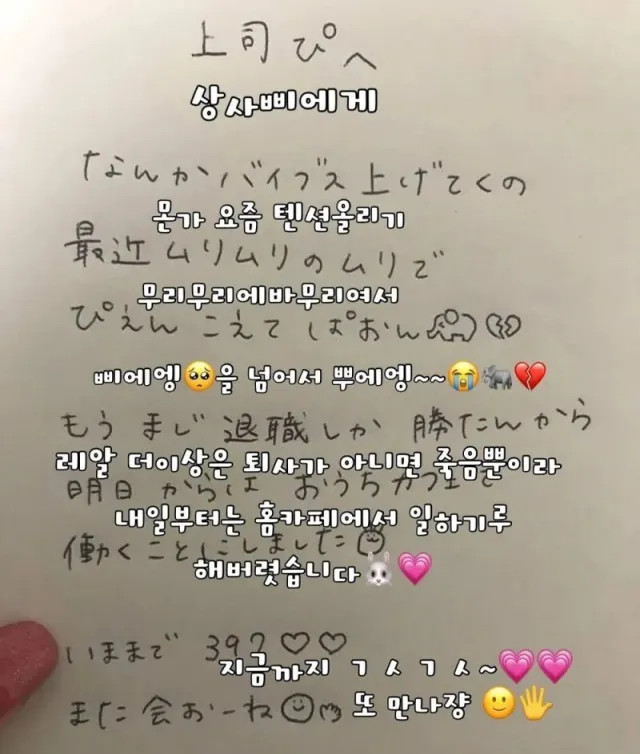 上司ぴへ
상사삐에게
なんかバイブス上げてくの
몬가 요즘 텐션올리기
最近ムリムリのムリで
무리무리에바무리여서
ぴえん こえて ぱおん🐘💔
삐에엥🥺을 넘어서 뿌에엥~~😭🐘💔
もう まじ 退職しか 勝たんから
레알 더이상은 퇴사가 아니면 죽음뿐이라
明日 からは おうちカフェで
내일부터는 홈카페에서 일하기루
働くことにしました
해버렸습니다🐰💗
いままで 39? ♡♡
지금까지 ㄱㅅㄱㅅ~💗💗
また会おーね☺
또 만나쟝 🙂🖐